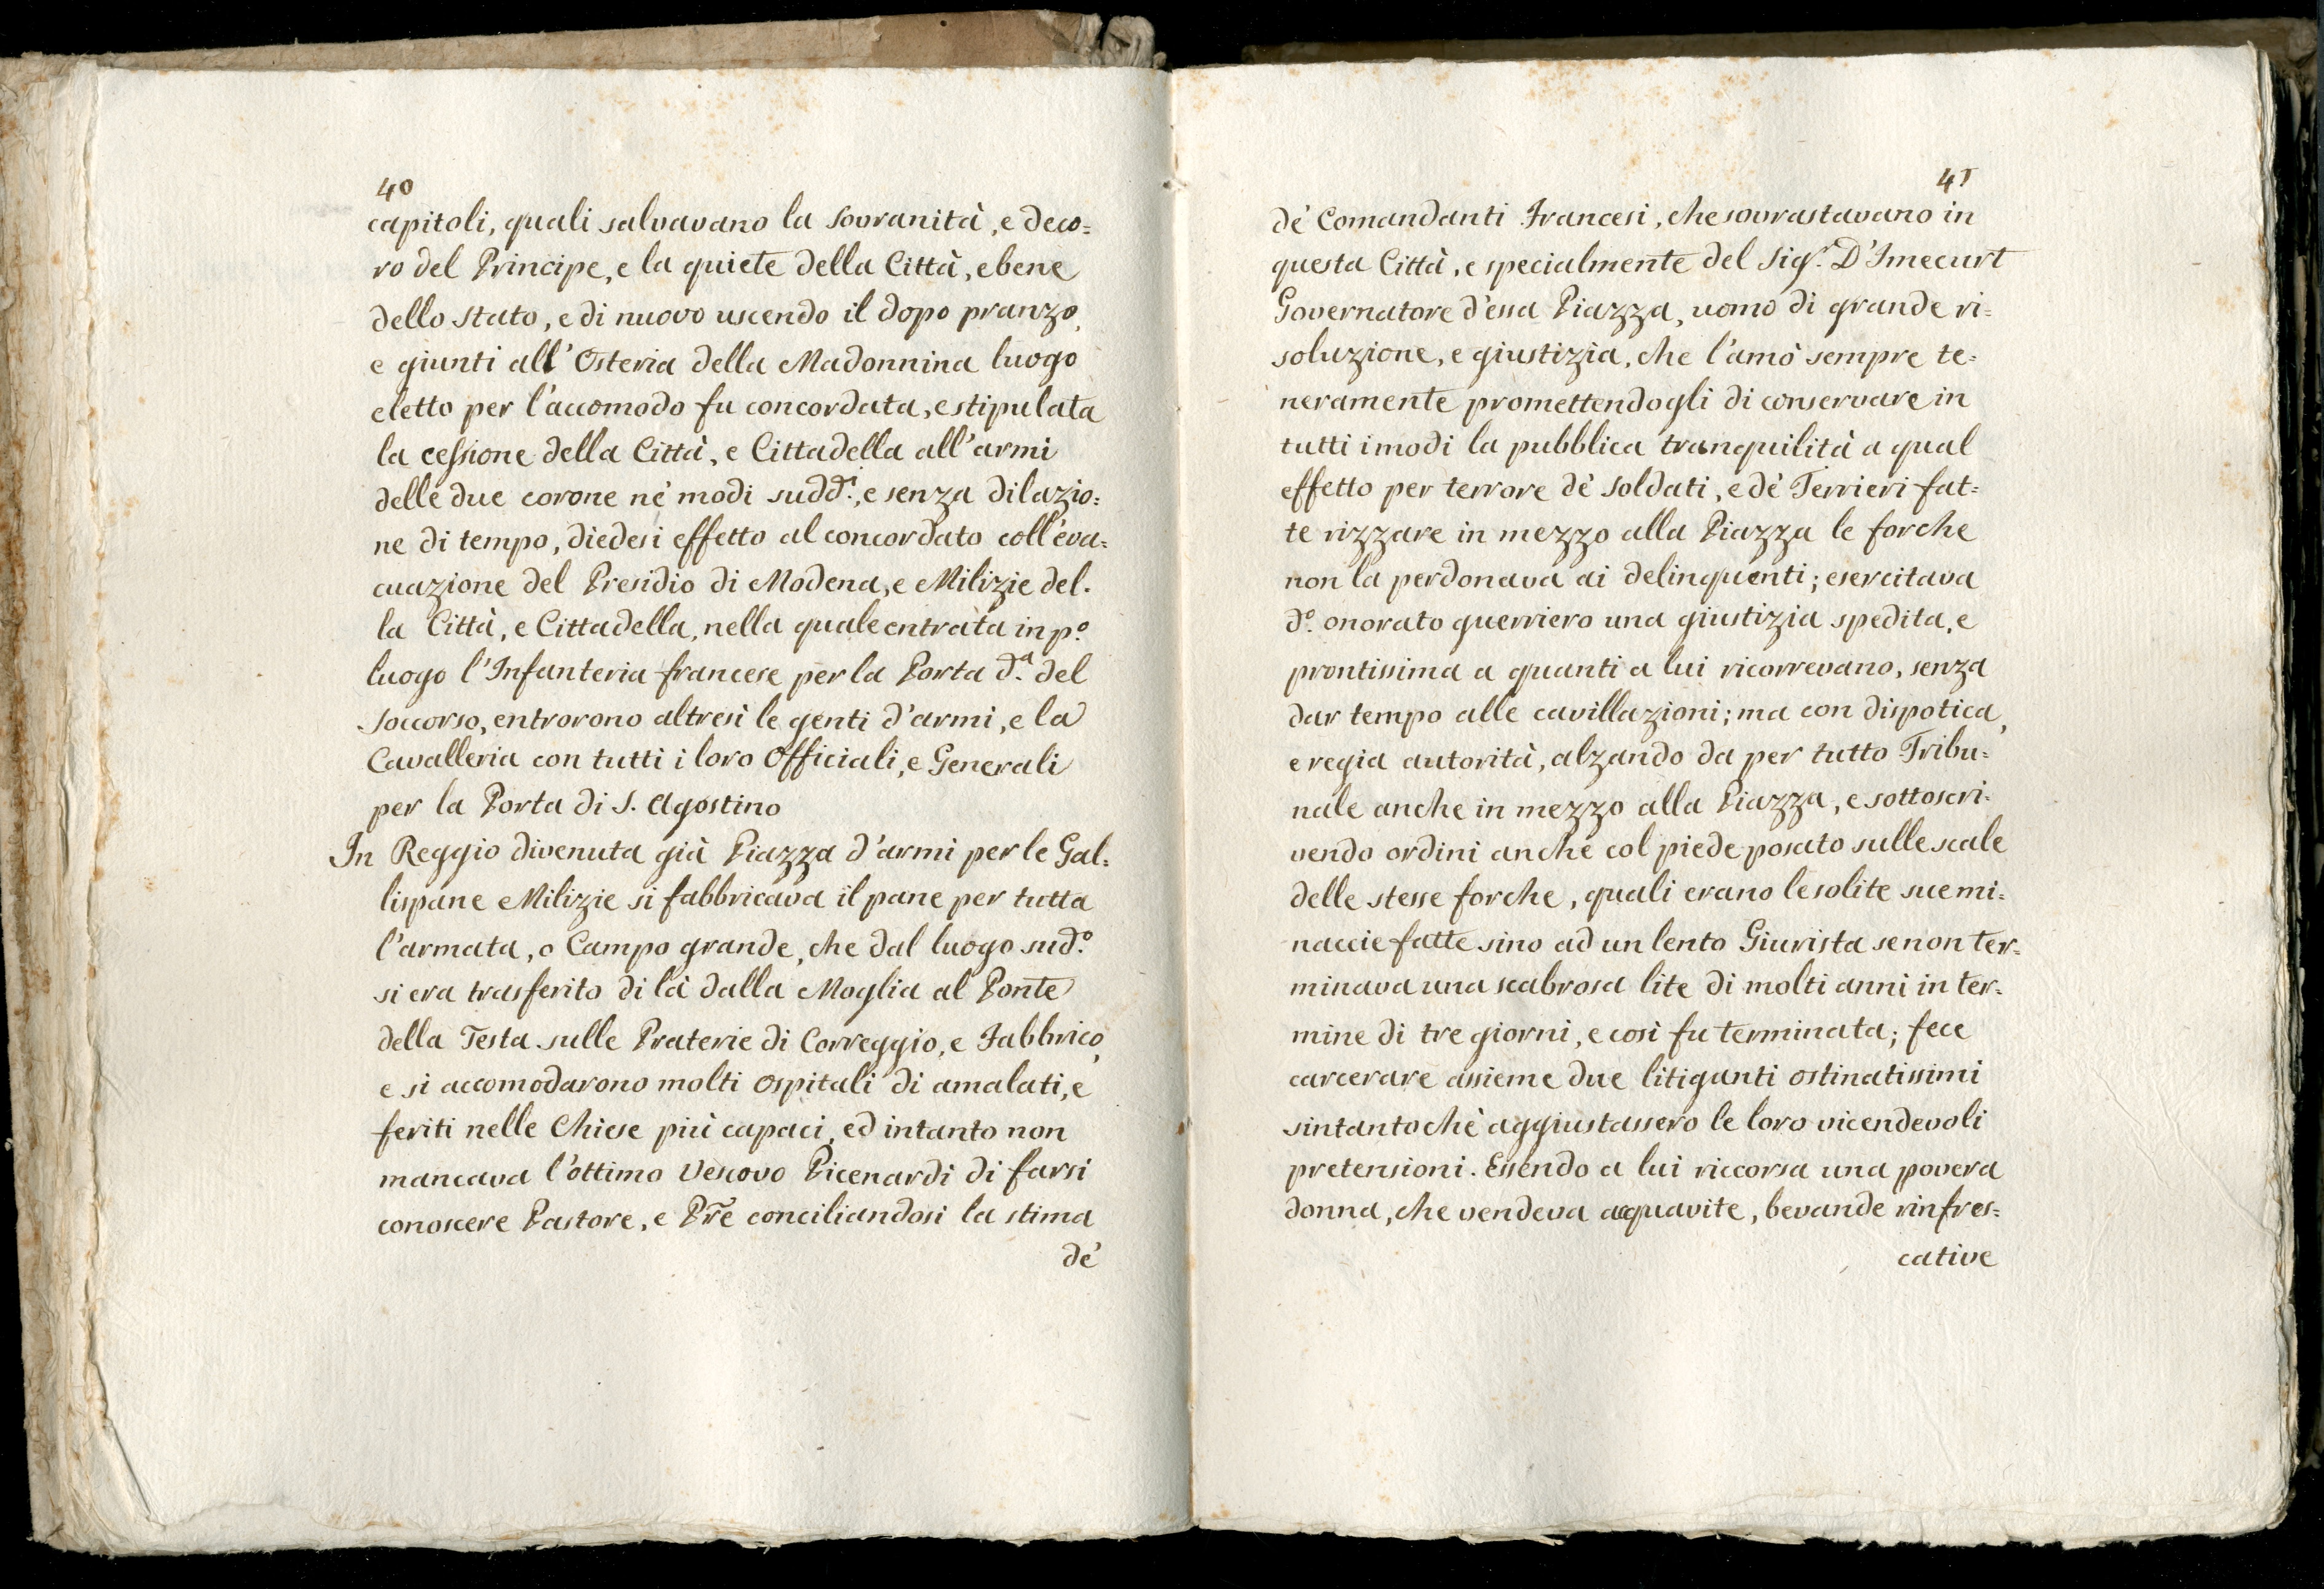 40
capitoli, quali salvavano la Sovranità, e deco=
ro del Principe, e la quiete della Città, e bene
dello Stato, e di nuovo uscendo il dopo pranzo,
e giunti all' Osteria della Madonnina luogo
eletto per l'accomodo fu concordata, e stipulata
la cessione della Città, e Cittadella all'armi
delle due corone ne' modi sudd.i, e senza dilazio=
ne di tempo, diedesi effetto al concordato coll'eva=
cuazione del Presidio di Modena, e Milizie del=
la Città, e Cittadella, nella quale entrata in p.o
luogo l'Infanteria francese per la Porta d.a del
Soccorso, entrorono altresì le genti d'armi, e la
Cavalleria con tutti i loro Officiali, e Generali
per la Porta di S. Agostino
In Reggio divenuta già Piazza d'armi per le Gal=
lispane Milizie si fabbricava il pane per tutta
l'armata, o Campo grande, che dal luogo sud.o
si era trasferito di là dalla Moglia al Ponte
della Testa sulle Praterie di Correggio, e Fabbrico,
e si accomodarono molti ospitali di amalati, e
feriti nelle Chiese più capaci, ed intanto non
mancava l'ottimo Vescovo Picenardi di farsi
conoscere Pastore, e Pr̃e conciliandosi la stima
de'
41
de' Comandanti Francesi, che sovrastavano in
questa Città, e specialmente del Sig.r D'Imecurt
Governatore d'essa Piazza, uomo di grande ri=
soluzione, e giustizia, che l'amò sempre te=
neramente promettendogli di conservare in
tutti i modi la pubblica tranquilità a qual
effetto per terrore de' Soldati, e de' Terrieri fat=
te rizzare in mezzo alla Piazza le forche
non la perdonava ai delinquenti; esercitava
d.o onorato guerriero una giustizia spedita, e
prontissima a quanti a lui ricorrevano, senza
dar tempo alle cavillazioni; ma con dispotica,
e regia autorità, alzando da per tutto Tribu=
nale anche in mezzo alla Piazza, e sottoscri=
vendo ordini anche col piede posato sulle scale
delle stesse forche, quali erano le solite sue mi=
naccie fatte sino ad un lento Giurista se non ter=
minava una scabrosa lite di molti anni in ter=
mine di tre giorni, e così fu terminata; fece
carcerare assieme due litiganti ostinatissimi
sintantochè aggiustassero le loro vicendevoli
pretensioni. Essendo a lui riccorsa una povera
donna, che vendeva acquavite, bevande rinfres=
cative